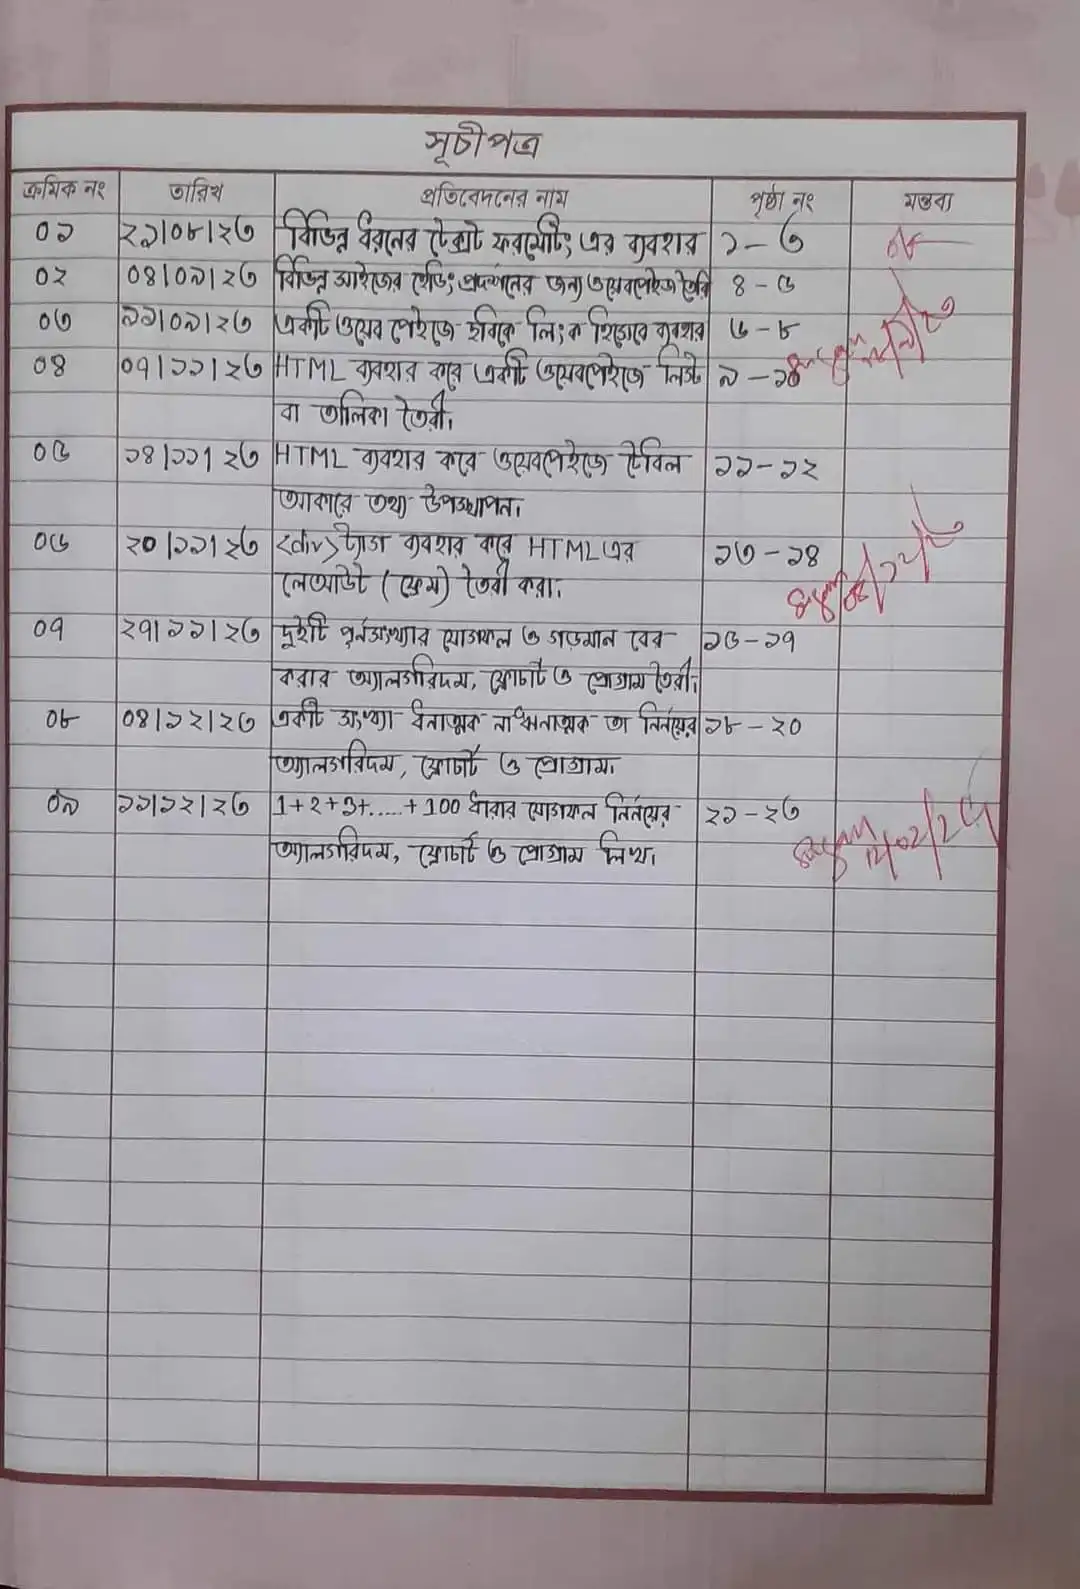 সূচীপত্র
ক্রমিক নং তারিখ প্রতিবেদনের নাম পৃষ্ঠা নং মন্তব্য
০১ ২১|০৮|২৩ বিভিন্ন ধরনের টেক্সট ফরমেটিং এর ব্যবহার ১-৩
০২ ০৪|০৯|২৩ বিভিন্ন সাইজের হেডিং প্রদর্শনের জন্য ওয়েবপেইজ তৈরি ৪-৫
০৩ ১১|০৯|২৩ একটি ওয়েব পেইজে ছবিকে লিংক হিসেবে ব্যবহার ৬-৮
০৪ ০৭|১১|২৩ HTML ব্যবহার করে একটি ওয়েবপেইজে লিস্ট ৯-১০
বা তালিকা তৈরী।
০৫ ১৪|১১|২৩ HTML ব্যবহার করে ওয়েবপেইজে টেবিল ১১-১২
আকারে তথ্য উপস্থাপন।
০৬ ২০|১১|২৩ <div> ট্যাগ ব্যবহার করে HTML এর ১৩-১৪
লেআউট (ফ্রেম) তৈরী করা।
০৭ ২৭|১১|২৩ দুইটি পূর্নসংখ্যার যোগফল ও গড়মান বের ১৫-১৭
করার অ্যালগরিদম, ফ্লোচার্ট ও প্রোগ্রাম তৈরী।
০৮ ০৪|১২|২৩ একটি সংখ্যা ধনাত্মক না ঋনাত্মক তা নির্নয়ের ১৮-২০
অ্যালগরিদম, ফ্লোচার্ট ও প্রোগ্রাম।
০৯ ১১|১২|২৩ 1+2+3+.....+100 ধারার যোগফল নির্নয়ের ২১-২৩
অ্যালগরিদম, ফ্লোচার্ট ও প্রোগ্রাম লিখ।
12/02/24